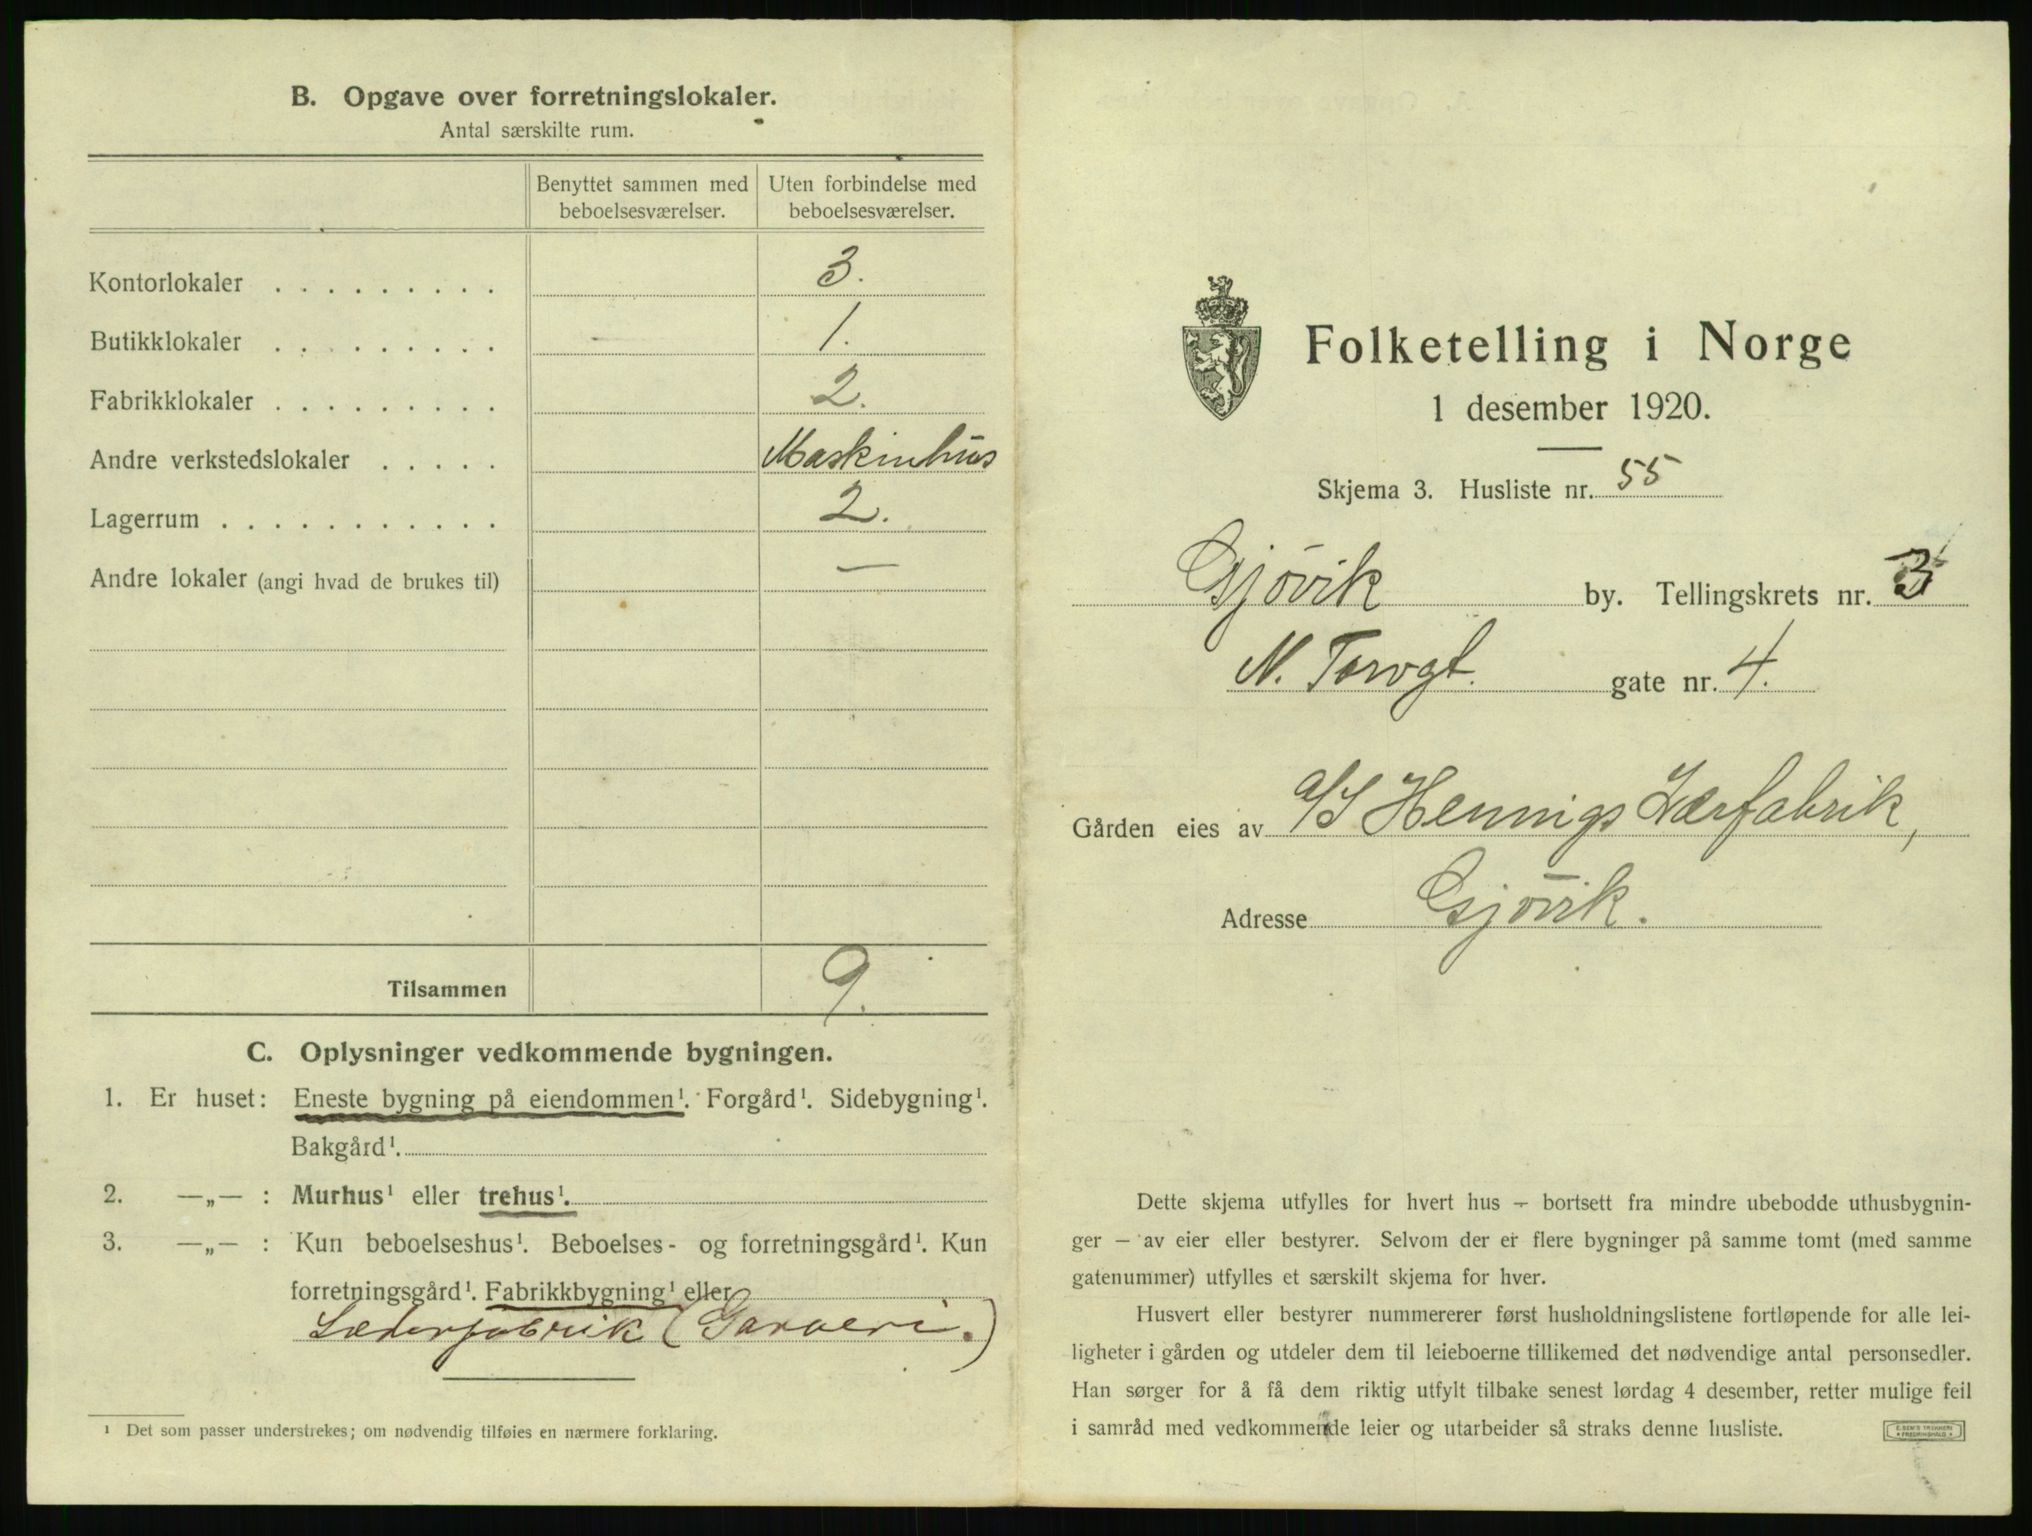 B. Opgave over forretningslokaler.
Antal særskilte rum.
Benyttet sammen med beboelsesværelser.
Uten forbindelse med beboelsesværelser.
Kontorlokaler . . . . . . . . . 3.
Butikklokaler . . . . . . . . . 1.
Fabrikklokaler . . . . . . . . . 2.
Andre verkstedslokaler . . . . . Maskinhus
Lagerrum . . . . . . . . . . . 2.
Andre lokaler (angi hvad de brukes til) —
Tilsammen 9.
C. Oplysninger vedkommende bygningen.
1. Er huset: Eneste bygning på eiendommen¹. Forgård¹. Sidebygning¹.
Bakgård¹.
2. —„— : Murhus¹ eller trehus¹.
3. —„— : Kun beboelseshus¹. Beboelses- og forretningsgård¹. Kun
forretningsgård¹. Fabrikkbygning¹ eller
Læderfabrik (Garveri.)
¹ Det som passer understrekes; om nødvendig tilføies en nærmere forklaring.
Folketelling i Norge
1 desember 1920.
Skjema 3. Husliste nr. 55
Gjövik by. Tellingskrets nr. 3
N. Torvgt. gate nr. 4.
Gården eies av a/S Hennigs Lærfabrik,
Adresse Gjövik.
Dette skjema utfylles for hvert hus – bortsett fra mindre ubebodde uthusbygnin-
ger – av eier eller bestyrer. Selvom der er flere bygninger på samme tomt (med samme
gatenummer) utfylles et særskilt skjema for hver.
Husvert eller bestyrer nummererer først husholdningslistene fortløpende for alle lei-
ligheter i gården og utdeler dem til leieboerne tillikemed det nødvendige antal personsedler.
Han sørger for å få dem riktig utfylt tilbake senest lørdag 4 desember, retter mulige feil
i samråd med vedkommende leier og utarbeider så straks denne husliste.